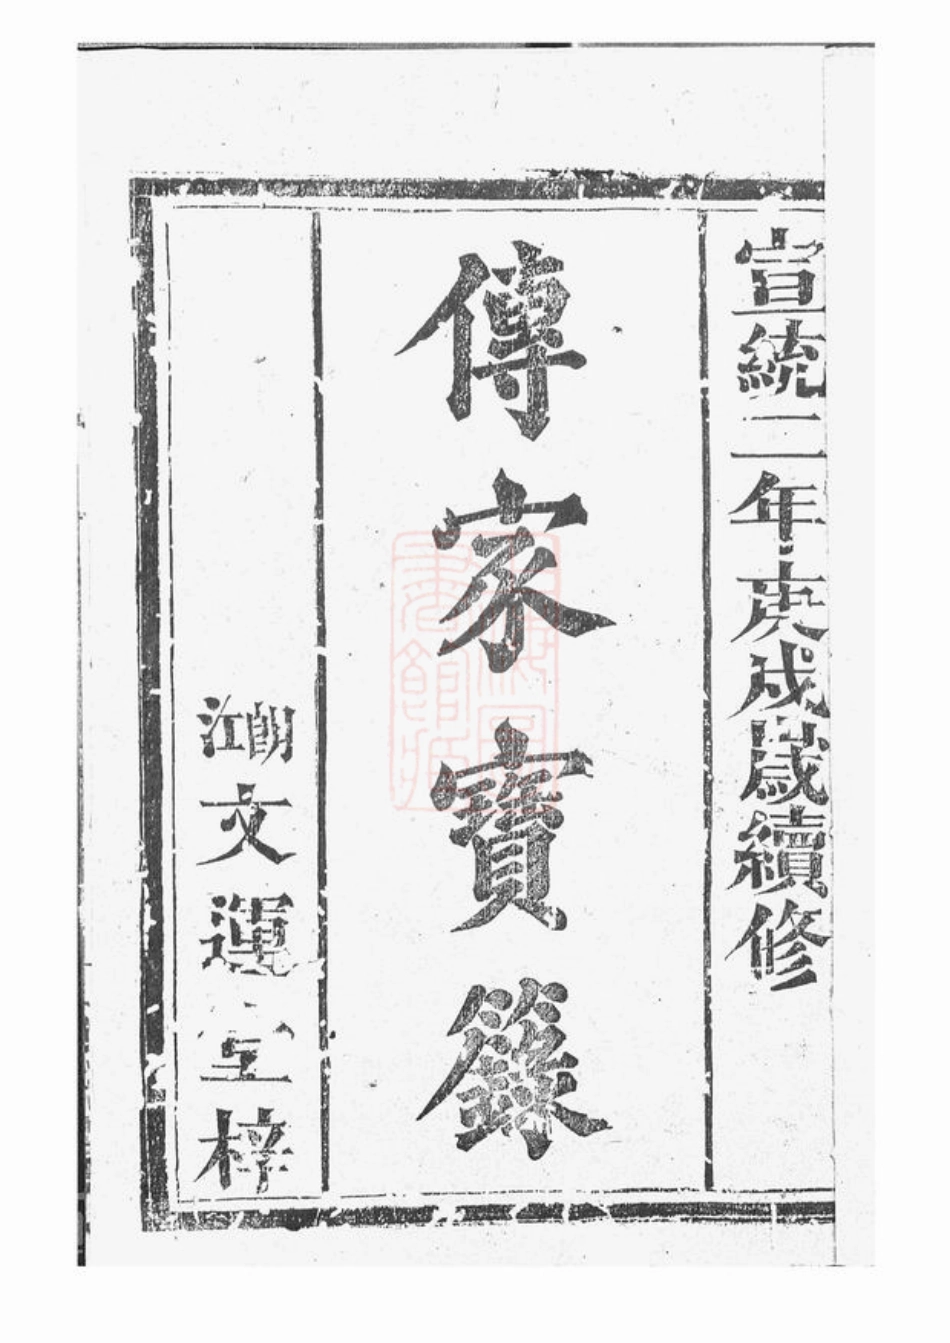 宣統二年庚戌歲續修
傳家寶籙
文運堂梓